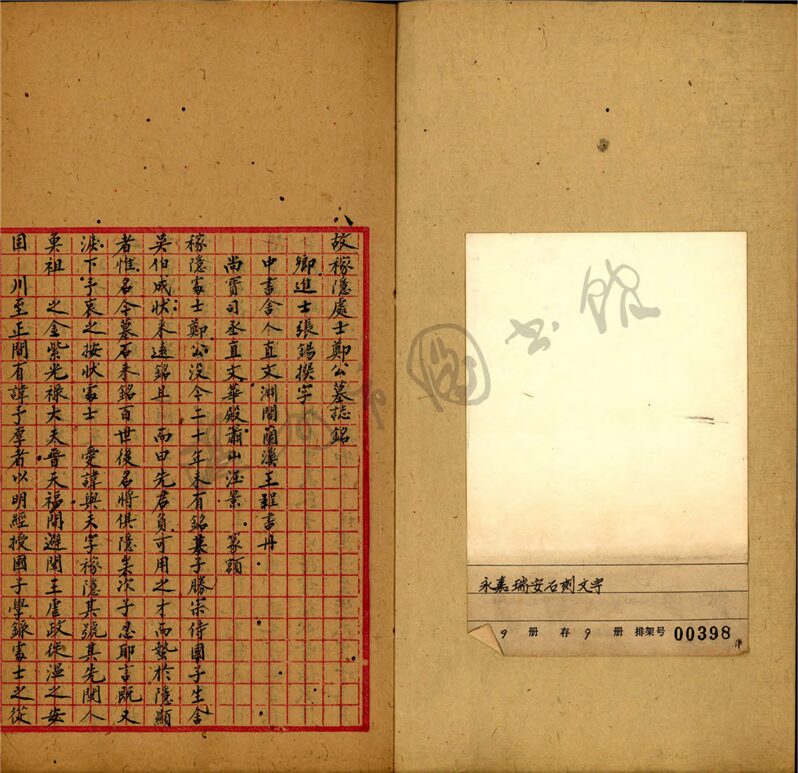 八
故稼隱處士鄭公墓誌銘
鄉進士張錫撰字
中書舍人直文淵閣蘭溪王程書丹
尚寶司丞直文華殿蕭山汪景 篆額
稼隱處士鄭公沒今二十年未有銘墓子勝宗侍國子生舍
吳伯成狀來遠銘且 而曰先君負可用之才而蟄於隱顯
者惟名今墓石未銘百世後名將俱隱矣次子忍耶言既又
淚下予哀之按狀處士 愛諱與夫字稼隱其號其先閩人
奠祖 之金紫光祿大夫晉天福間避閩王虐政徙溫之安
固 川至正間有諱子厚者以明經授國子學錄處士之從
書館
圖
永嘉瑞安石刻文字
9 册 存 9 册 排架号 00398